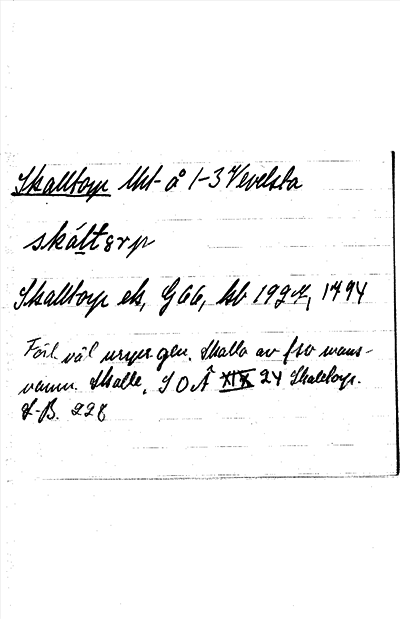 Skalltorp Utt- å 1-3 Vevelsta
skáltǝrp
Skalltorp ek, G66, bl 192, 1794
Förl väl ursyn gen. Skalla av fsv mans-
namn. Skalle. S O Ä XIX 24 Skaletorp.
L-B. 228